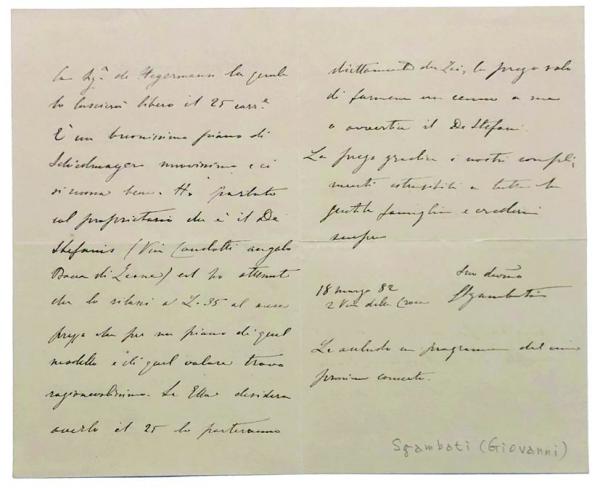 la Sg.ª de Hegermann la quale
lo lascierà libero il 25 corr.e
È un buonissimo piano di
Schiedmayer nuovissimo e ci
si suona bene. Ho parlato
col proprietario che è il De
Stefanis (Via Condotti angolo
Bocca di Leone) ed ho ottenuto
che lo rilasci a L. 35 al mese
prezzo che per un piano di quel
modello e di quel valore trovo
ragionevolissimo. Se Ella desidera
averlo il 25 lo porteranno
direttamente da Lei, la prego solo
di farmene un cenno a me
o avvertir il De Stefani.
La prego gradire i nostri compli,
menti estensibili a tutta la
gentile famiglia e credermi
sempre
Suo devmo
18 marzo 82 Sgambati
2 Via della Croce
Le accludo un programma del mio
prossimo concerto.
Sgambati (Giovanni)